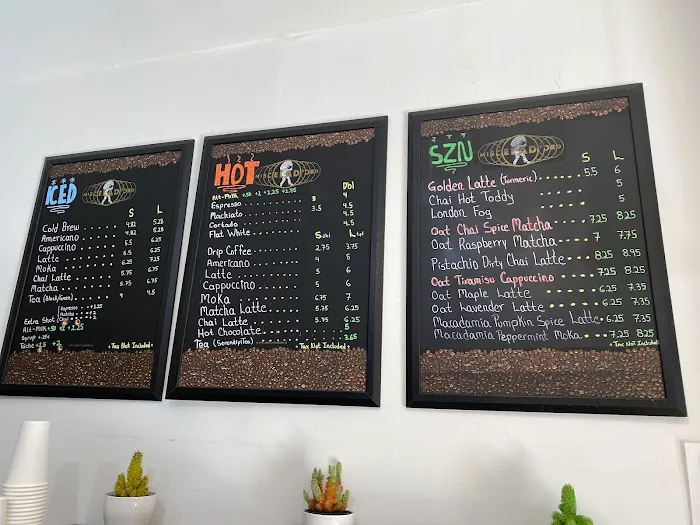 ICED
S L
Cold Brew 4.82 5.28
Americano 4.82 5.28
Cappuccino 5.5 6.25
Latte 6.25 7.25
Moka 6.75
Chai Latte 5.75 6.75
Matcha 5.75 6.75
Tea (Black/Green) 4 4.5
Extra Shot
Espresso +1.25
Matcha
Chai
Alt-Milk +.50
Syrup
+Tax Not Included+
HOT
Alt-Milk +.50 +1 +1.25 +1.75
Dbl
Espresso 3 4
Machiato 3.5 4.5
Cortado 4.5
Flat White 4.5
S L
Drip Coffee 2.75 3.75
Americano 4 5
Latte 5 6
Cappuccino 5 6
Moka 6
Matcha Latte 5.75 7
Chai Latte 5.75 6.25
Hot Chocolate 5
Tea (SerendipiTea) 3.65
+Tax Not Included+
SZN
MISLEADFORD
S L
Golden Latte (Turmeric) 5.5 6
Chai Hot Toddy 5
London Fog 5
Oat Chai Spice Matcha 7.25 8.25
Oat Raspberry Matcha 7 7.75
Pistachio Dirty Chai Latte 8.25 8.95
Oat Tiramisu Cappuccino 7.25 8.25
Oat Maple Latte 6.25 7.35
Oat Lavender Latte 6.25 7.35
Macadamia Pumpkin Spice Latte 6.25 7.35
Macadamia Peppermint Moka 7.25 8.25
+Tax Not Included